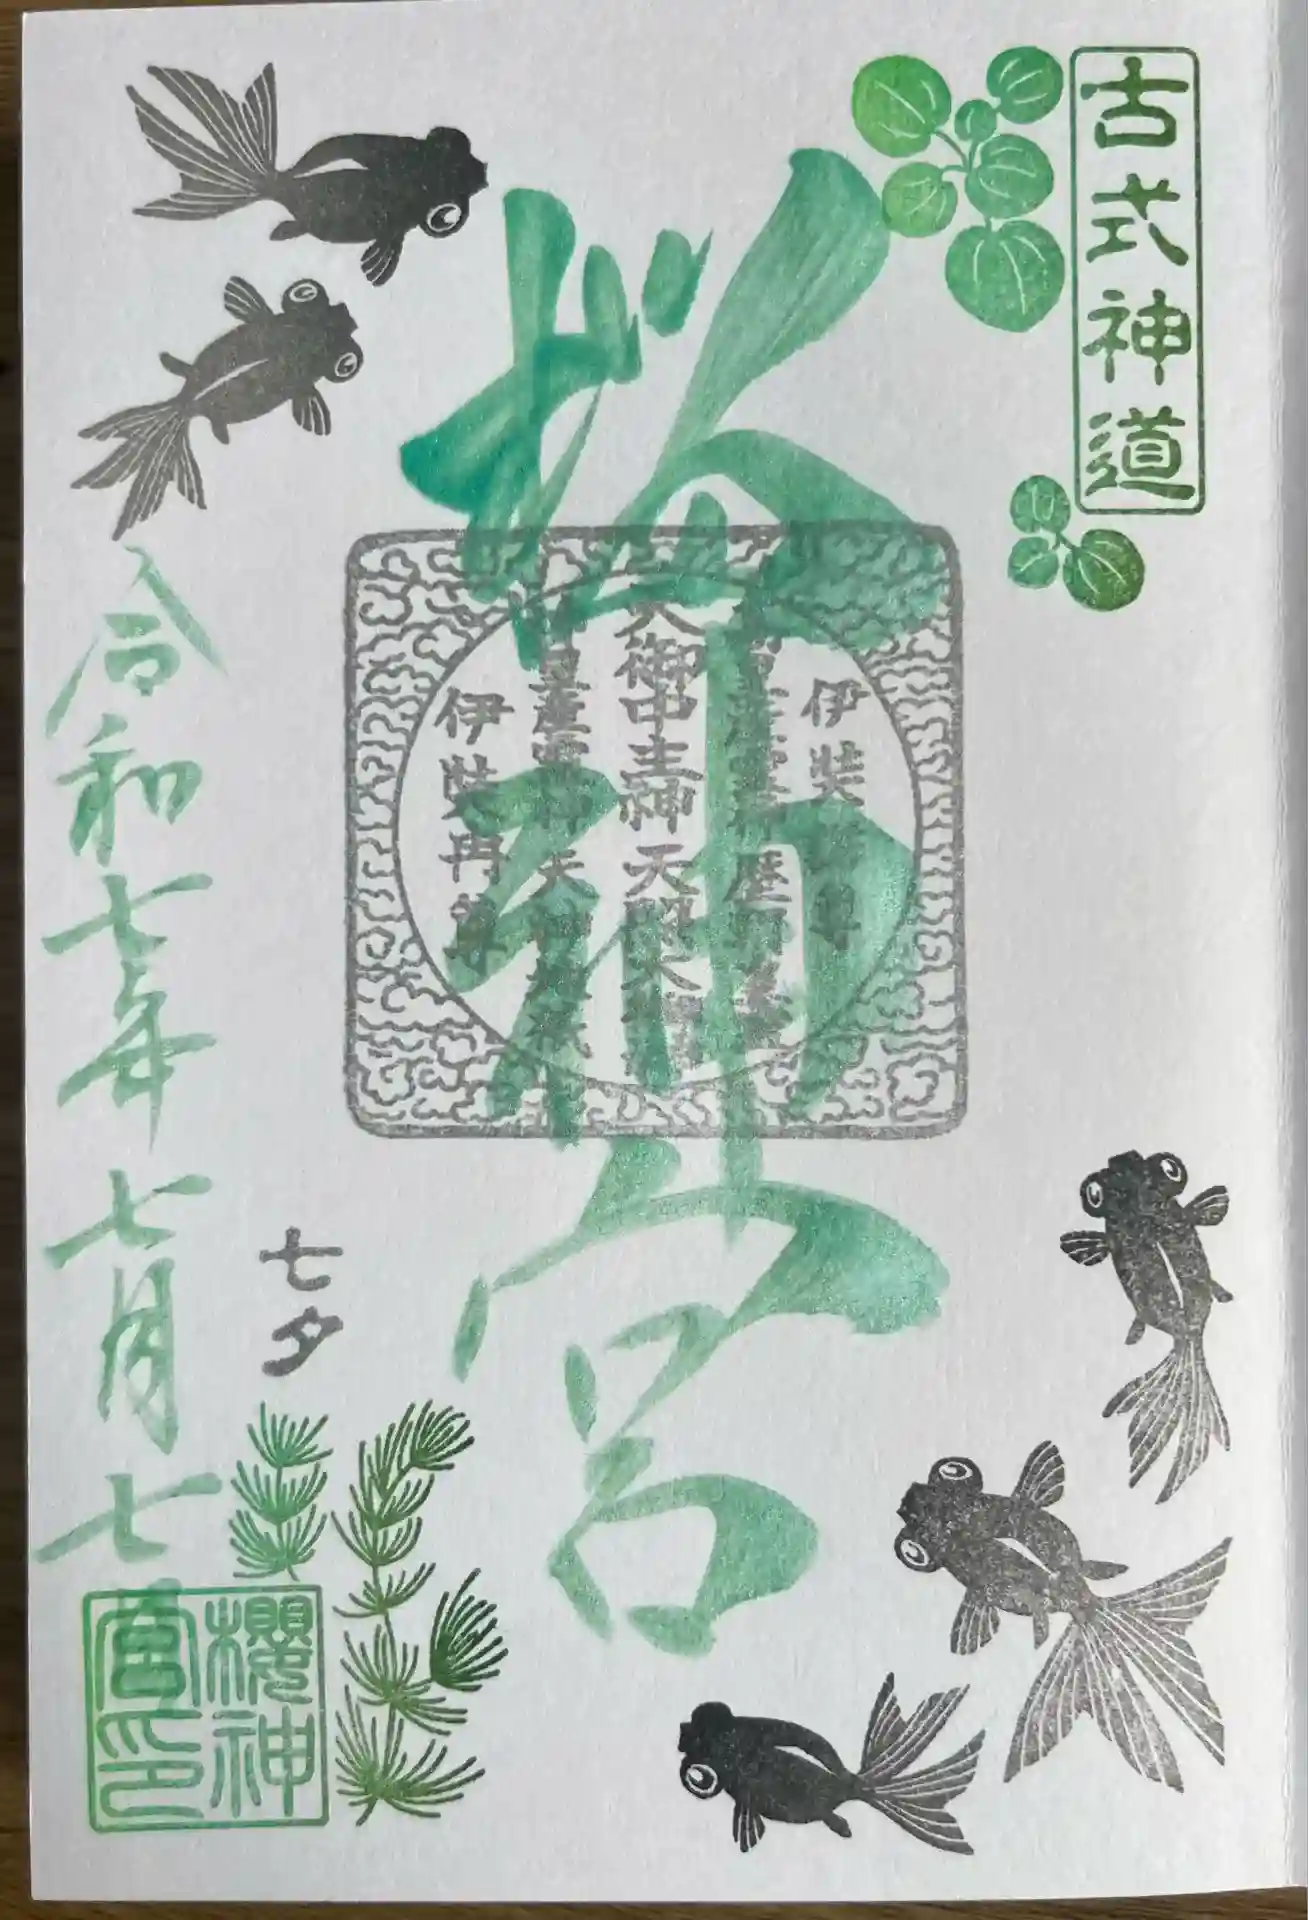 古式神道
桜神宮
伊弉諾尊
天御中主神 天照大神
伊弉冉尊
七夕
令和七年七月七日
櫻神
宮印